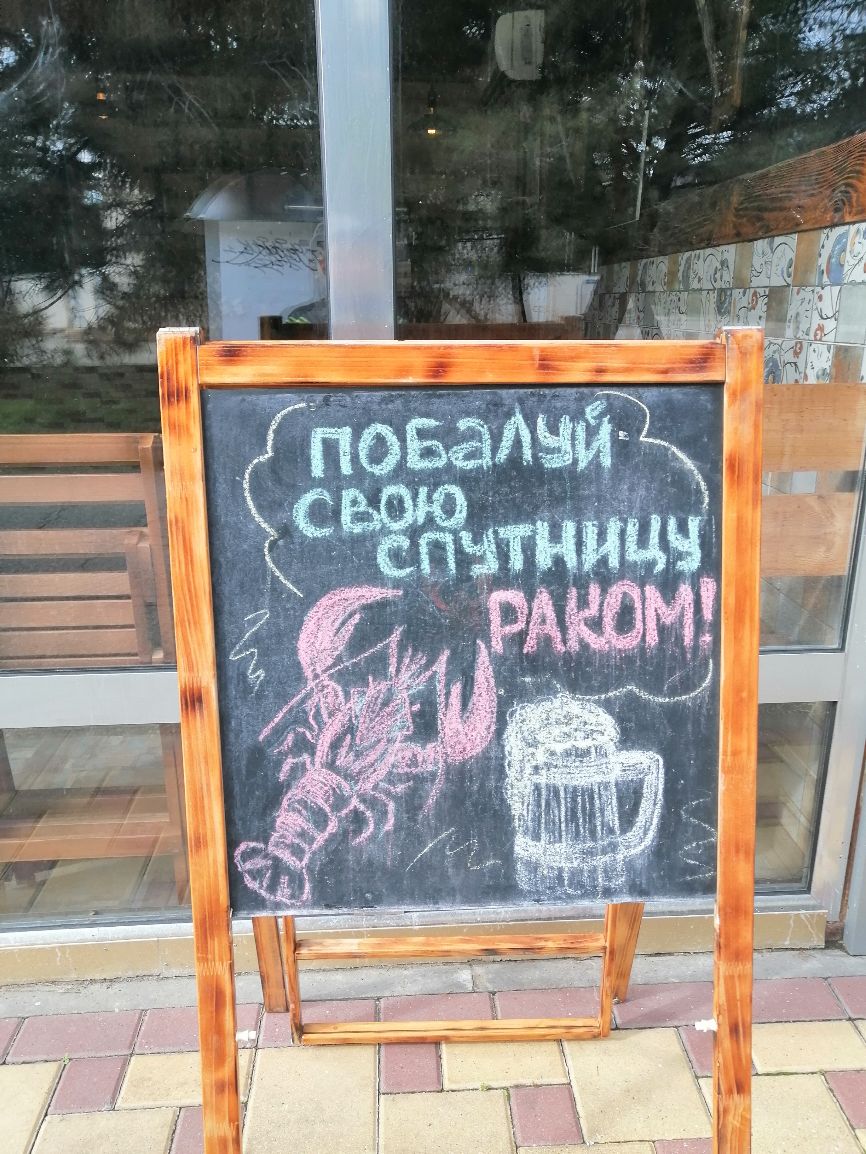 ПОБАЛУЙ
СВОЮ
СПУТНИЦУ
РАКОМ!